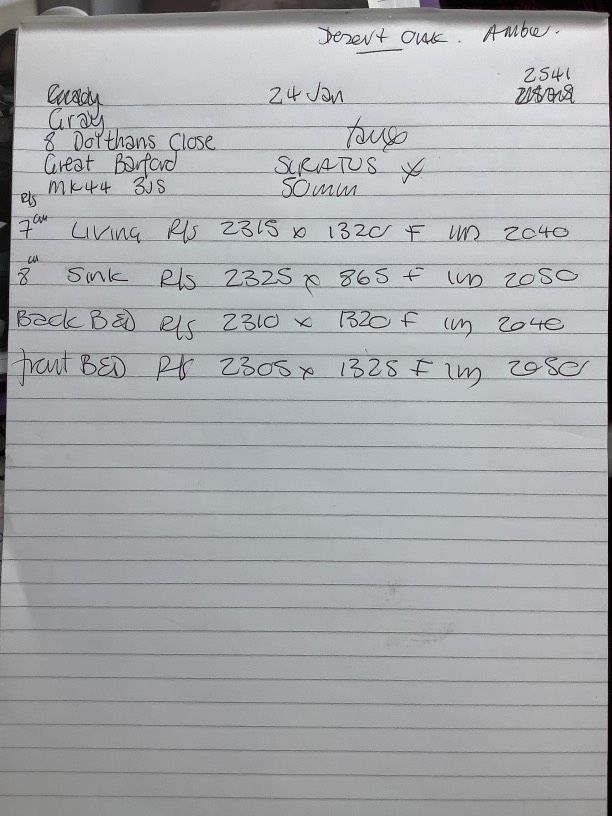 Desert Oak. Amber.
2541
24 Jan
Gray
8 Dorthans Close
Great Barford SCRATUS x
MK44 3JS 50mm
R/s
7 Living R/s 2315 x 1320 F 2040
8 Sink R/s 2325 x 865 F 2050
Back BED R/s 2310 x 1320 F 2040
front BED R/s 2305 x 1325 F 2050